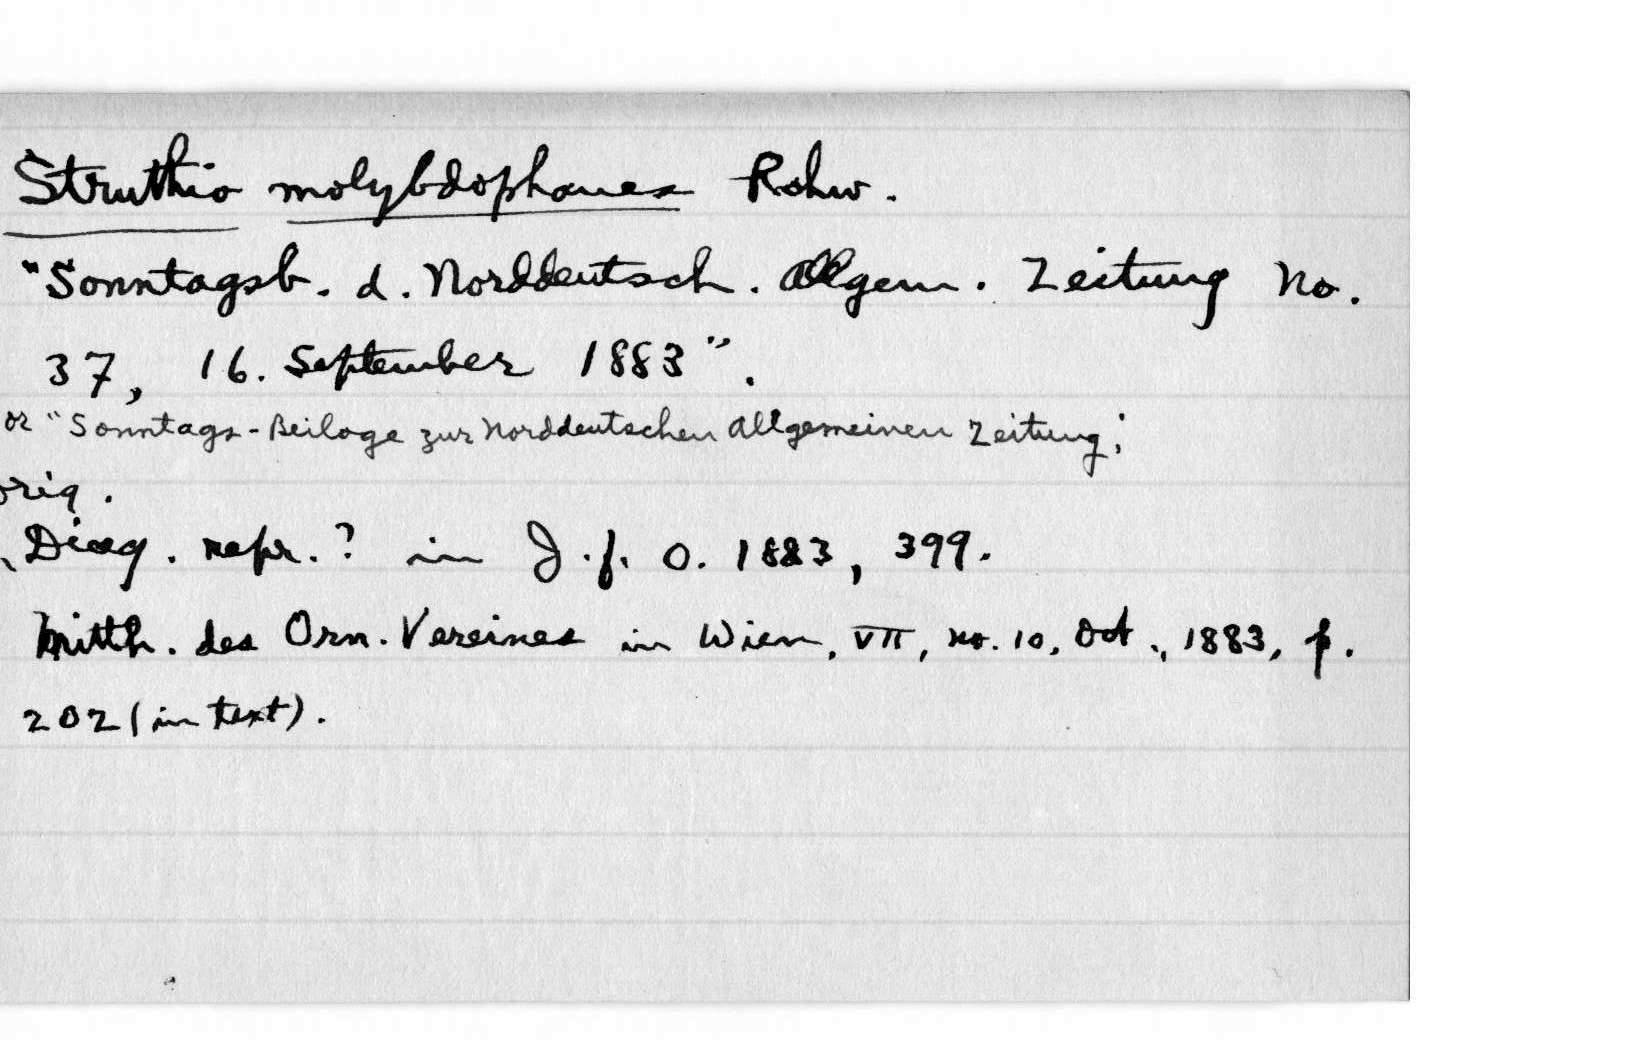 Struthio molybdophanes Rchw.
"Sonntagsb. d. Norddeutsch. Allgem. Zeitung No.
37, 16. September 1883".
or "Sonntags-Beilage zur Norddeutschen Allgemeinen Zeitung;
orig.
Diag. repr.? in J. f. O. 1883, 399.
Mitth. des Orn. Vereines in Wien, VII, no. 10, Oct., 1883, p.
202 (in text).